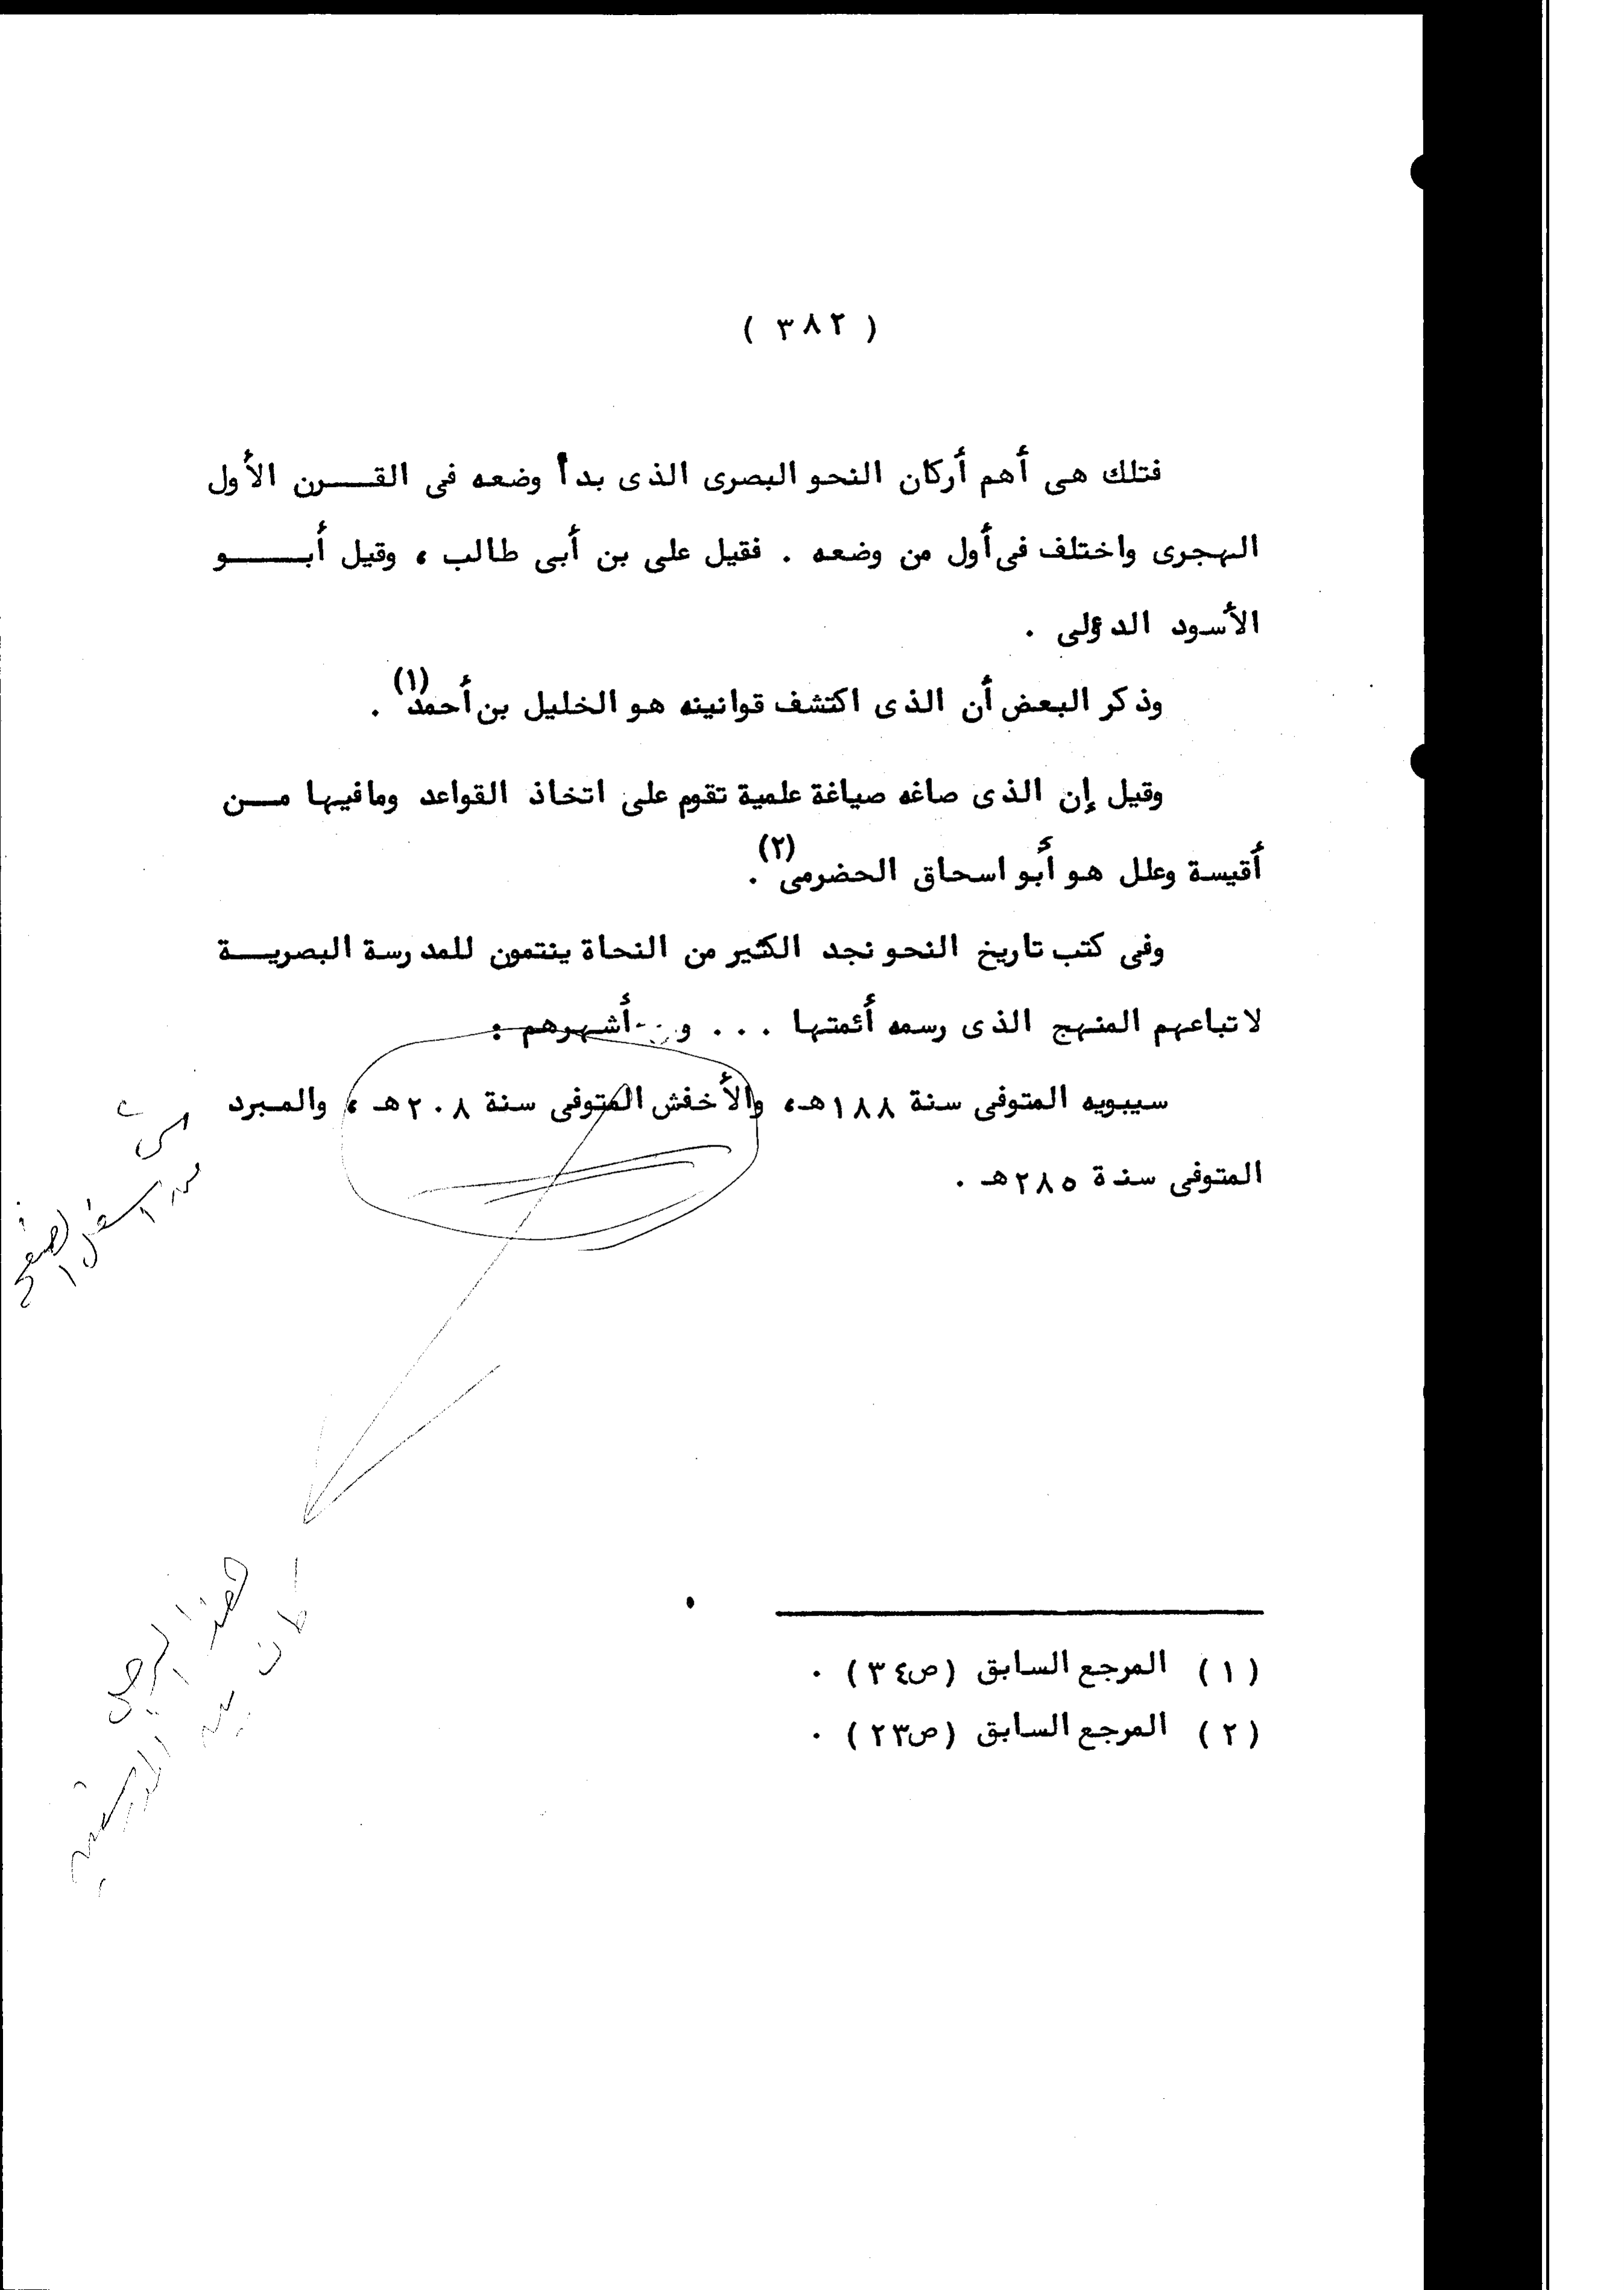 ( ٣٨٢ )
فتلك هى أهم أركان النحو البصرى الذى بدأ وضعه فى القـــرن الأول
الهجرى واختلف فى أول من وضعه . فقيل على بن أبى طالب ، وقيل أبـــــو
الأسود الدؤلى .
وذكر البعض أن الذى اكتشف قوانينه هو الخليل بن أحمد (١) .
وقيل إن الذى صاغه صياغة علمية تقوم على اتخاذ القواعد ومافيها مـــن
أقيسة وعلل هو أبو اسحاق الحضرمى (٢) .
وفى كتب تاريخ النحو نجد الكثير من النحاة ينتمون للمدرسة البصريـــة
لاتباعهم المنهج الذى رسمه أئمتها ... و أشهرهم :
سيبويه المتوفى سنة ١٨٨هـ، والأخفش المتوفى سنة ٢٠٨هـ ، والمبرد
المتوفى سنة ٢٨٥هـ .
من اسفل الصفح
هذا الرجل
كان بين المدرستين
(١) المرجع السابق (ص٣٤) .
(٢) المرجع السابق (ص٢٣) .